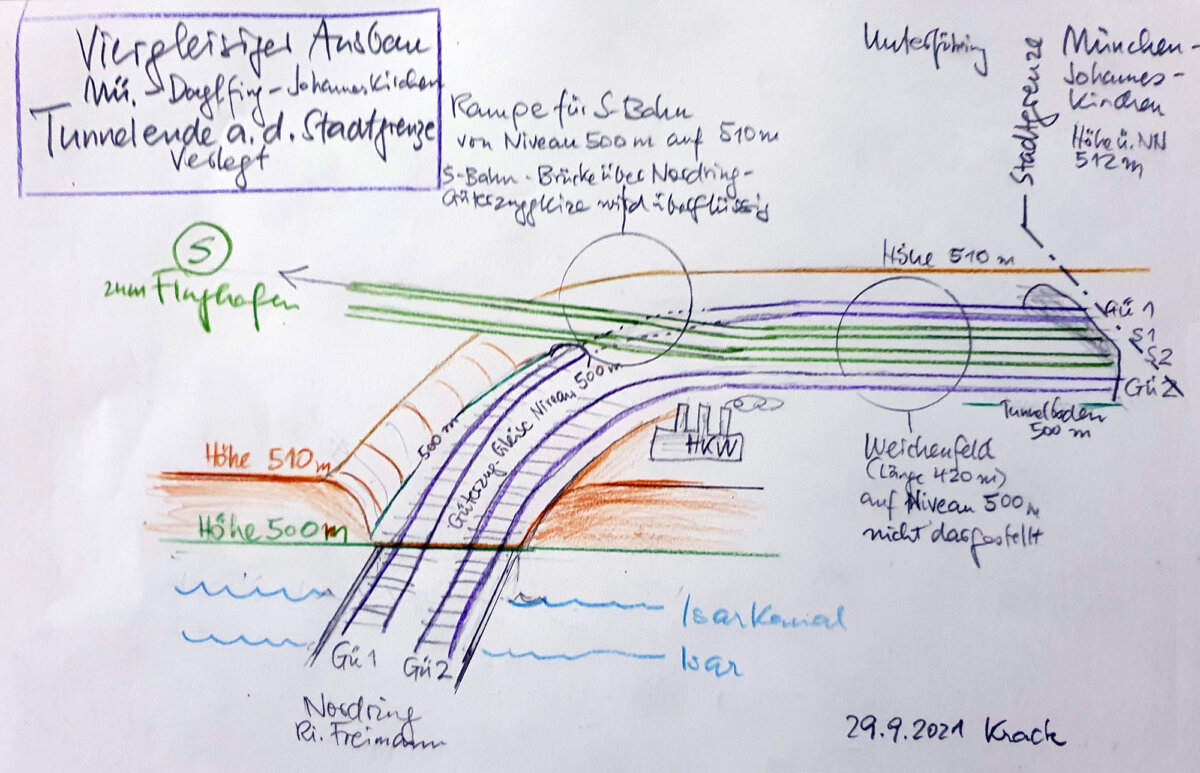 Viergleisiger Ausbau
Mü. Daglfing - Johanneskirchen
Tunnelende a. d. Stadtgrenze
verlegt
Rampe für S-Bahn
von Niveau 500 m auf 510 m
S-Bahn-Brücke über Nordring-
Güterzuggleise wird überflüssig
Unterföhring
Stadtgrenze
München-
Johannes-
Kirchen
Höhe ü. NN
512 m
S
zum Flughafen
Höhe 510 m
Gü 1
S1
S2
Gü 2
Tunnelboden
500 m
500 m
500 m
Güterzug-Gleise Niveau
HKW
Weichenfeld
(Länge 420 m)
auf Niveau 500 m
nicht dargestellt
Höhe 510 m
Höhe 500 m
Isarkanal
Isar
Gü 1
Gü 2
Nordring
Ri. Freimann
29.9.2021 Krack